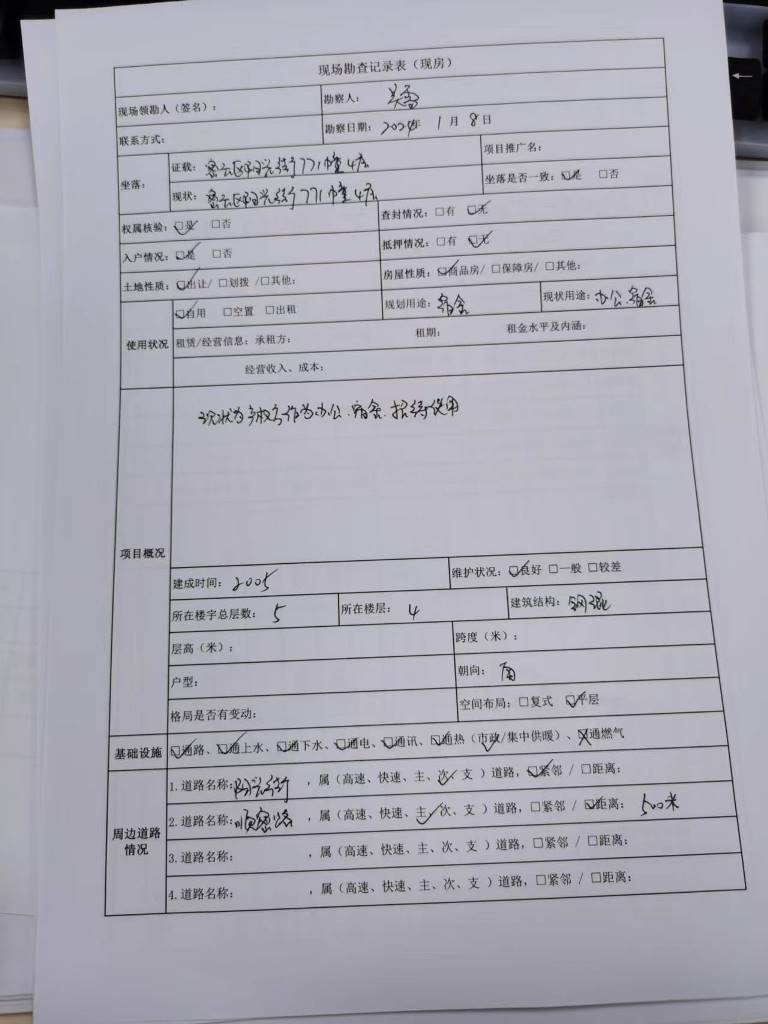 现场勘查记录表（现房）
现场领勘人（签名）： 勘察人： 吴雷
联系方式： 勘察日期：2024年 1 月 8 日
坐落： 证载：密云区阳光街771幢4层 项目推广名：
现状：密云区阳光街771幢4层 坐落是否一致：☑是 □否
权属核验：☑是 □否 查封情况：□有 ☑无
入户情况：☑是 □否 抵押情况：□有 ☑无
土地性质：☑出让/ □划拨 /□其他： 房屋性质：☑商品房/ □保障房/ □其他：
使用状况 ☑自用 □空置 □出租 规划用途：宿舍 现状用途：办公.宿舍
租赁/经营信息：承租方： 租期： 租金水平及内涵：
经营收入、成本：
项目概况 现状为产权方作为办公.宿舍.招待使用
建成时间：2005 维护状况：☑良好 □一般 □较差
所在楼宇总层数： 5 所在楼层： 4 建筑结构：钢混
层高（米）： 跨度（米）：
户型： 朝向： 南
格局是否有变动： 空间布局：□复式 ☑平层
基础设施 ☑通路、☑通上水、☑通下水、☑通电、☑通讯、☑通热（市政/集中供暖）、☒通燃气
周边道路情况 1.道路名称：阳光街 ，属（高速、快速、主、次、支 ）道路，☑紧邻 / □距离：
2.道路名称：顺密路 ，属（高速、快速、主、次、支 ）道路，□紧邻 / ☑距离： 500米
3.道路名称： ，属（高速、快速、主、次、支 ）道路，□紧邻 / □距离：
4.道路名称： ，属（高速、快速、主、次、支 ）道路，□紧邻 / □距离：